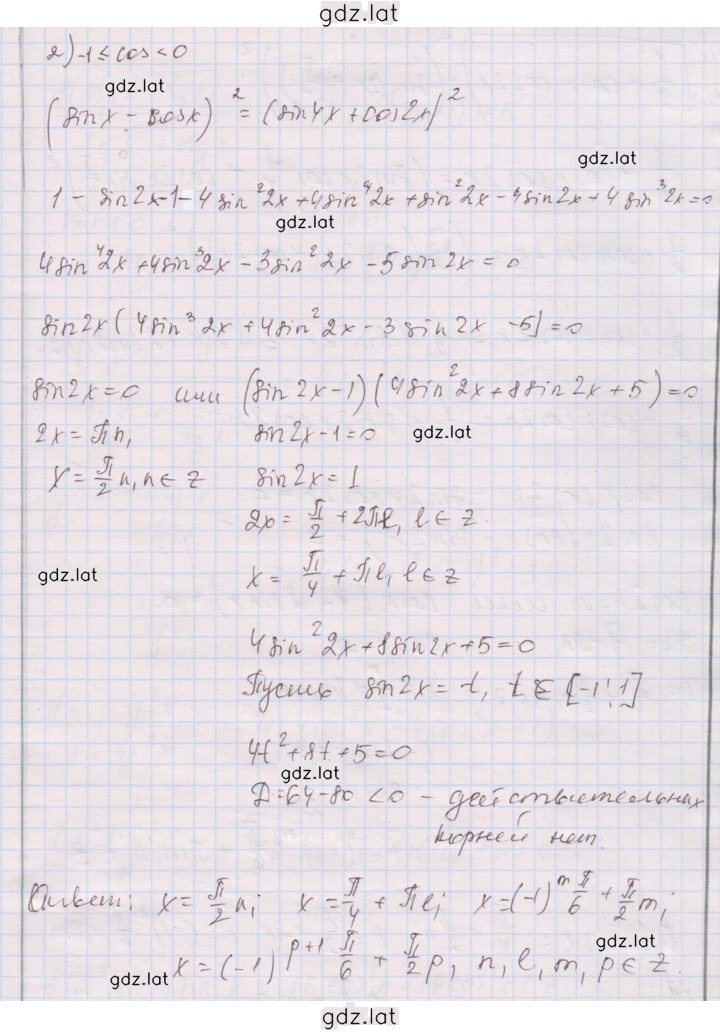 gdz.lat
2) -1 ≤ cos < 0
gdz.lat
(sin x - cos x)² = (sin 4x + cos 2x)²
gdz.lat
1 - sin 2x - 1 - 4 sin² 2x + 4 sin⁴ 2x + sin² 2x - 4 sin 2x + 4 sin³ 2x = 0
gdz.lat
4 sin⁴ 2x + 4 sin³ 2x - 3 sin² 2x - 5 sin 2x = 0
sin 2x (4 sin³ 2x + 4 sin² 2x - 3 sin 2x - 5) = 0
sin 2x = 0 или (sin 2x - 1)(4 sin² 2x + 8 sin 2x + 5) = 0
2x = πn, sin 2x - 1 = 0 gdz.lat
x = π/2 n, n ∈ Z sin 2x = 1
2x = π/2 + 2πl, l ∈ Z
gdz.lat x = π/4 + πl, l ∈ Z
4 sin² 2x + 8 sin 2x + 5 = 0
Пусть sin 2x = t, t ∈ [-1; 1]
4t² + 8t + 5 = 0
gdz.lat
D = 64 - 80 < 0 - действительных
корней нет.
Ответ: x = π/2 n; x = π/4 + πl; x = (-1)^m π/6 + π/2 m;
gdz.lat
x = (-1)^(p+1) π/6 + π/2 p, n, l, m, p ∈ Z
gdz.lat
gdz.lat